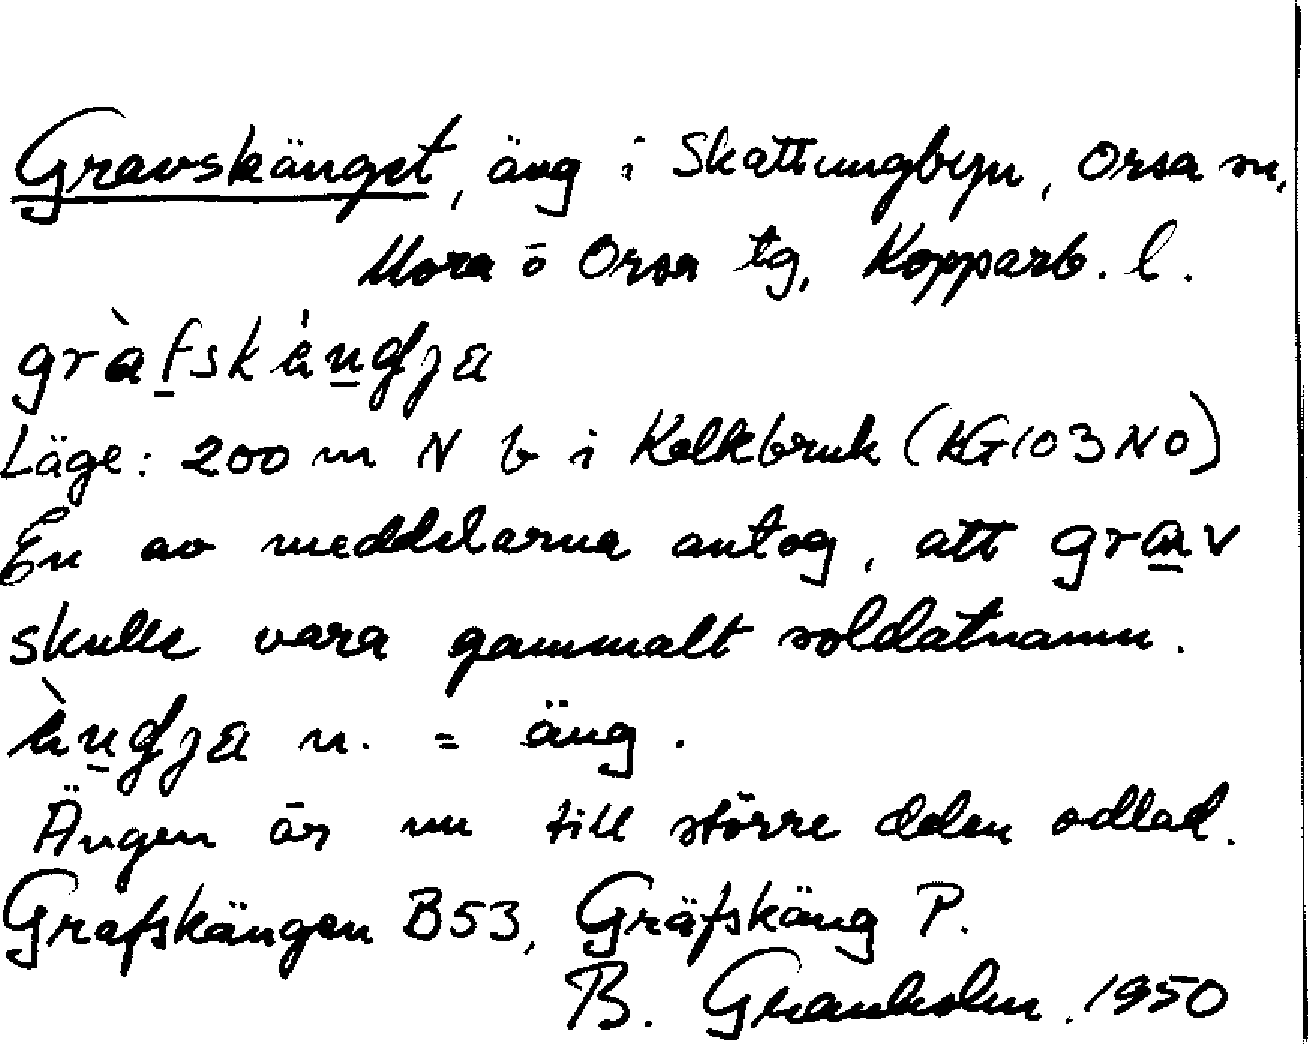 Gravskänget, äng i Skattungbyn, Orsa sn,
Mora o Orsa tg, Kopparb. l.
gràfskàndja
Läge: 200 m N b i Kalkbruk (kG103NO)
En av meddelarna antog, att grav
skulle vara gammalt soldatnamn.
àndja n. = äng.
Ängen är nu till större delen odlad.
Grafskängen B53, Gräfskäng P.
B. Granholm. 1950